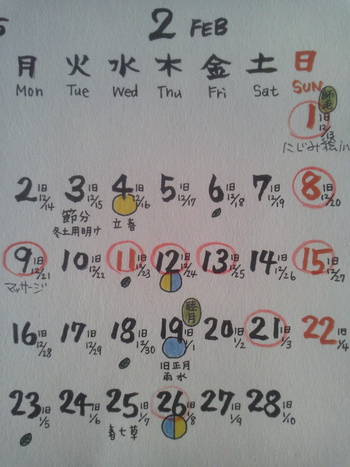 2 FEB
月 火 水 木 金 土 日
Mon Tue Wed Thu Fri Sat SUN
師走
1 旧12/13
にじみ絵in
2 旧12/14 3 旧12/15 4 旧12/16 5 旧12/17 6 旧12/18 7 旧12/19 8 旧12/20
節分 立春
冬土用明け
9 旧12/21 10 旧12/22 11 旧12/23 12 旧12/24 13 旧12/25 14 旧12/26 15 旧12/27
マッサージ
睦月
16 旧12/28 17 旧12/29 18 旧12/30 19 旧1/1 20 旧1/2 21 旧1/3 22 旧1/4
旧正月
雨水
23 旧1/5 24 旧1/6 25 旧1/7 26 旧1/8 27 旧1/9 28 旧1/10
春七草